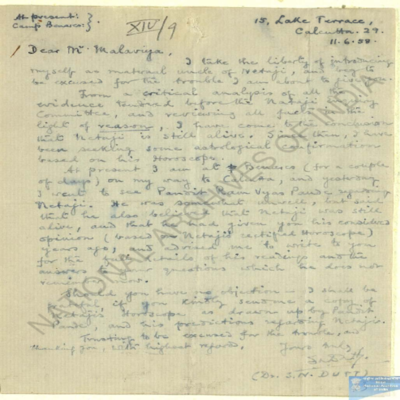 At present: }.
Camp Benares. }.
XIV/9
15, Lake Terrace,
Calcutta. 29.
11.6.58.
Dear Mr. Malaviya,
I take the liberty of introducing
myself as maternal uncle of Netaji, and beg to
be excused for the trouble I am about to give you.
From a critical analysis of all the
evidence tendered before the Netaji Enquiry
Committee, and reviewing all facts in the
light of reason, I have come to the conclusion
that Netaji is still alive. Since then, I have
been seeking some astrological confirmation
based on his Horoscope.
At present I am at Benares (for a couple
of days) on my way to, and yesterday
I went to see Pandit Ram Vyas Pande regarding
Netaji. He was somewhat unwell, but said
that he also believed that Netaji was still
alive, and that he had given you his considered
opinion (based on Netaji's Horoscope)
years ago, and advised me to write to you
for the details of his readings and the
answers to your questions which he does not
remember.
Should you have no objection I shall be
if you kindly send me a copy of
Netaji's Horoscope as drawn up by Pandit
Pande, and his predictions regarding Netaji.
Trusting to be excused for the trouble, and
thanking you, with highest regards,
Yours truly,
(Dr. S. N. DUTT)
NATIONAL ARCHIVES OF INDIA